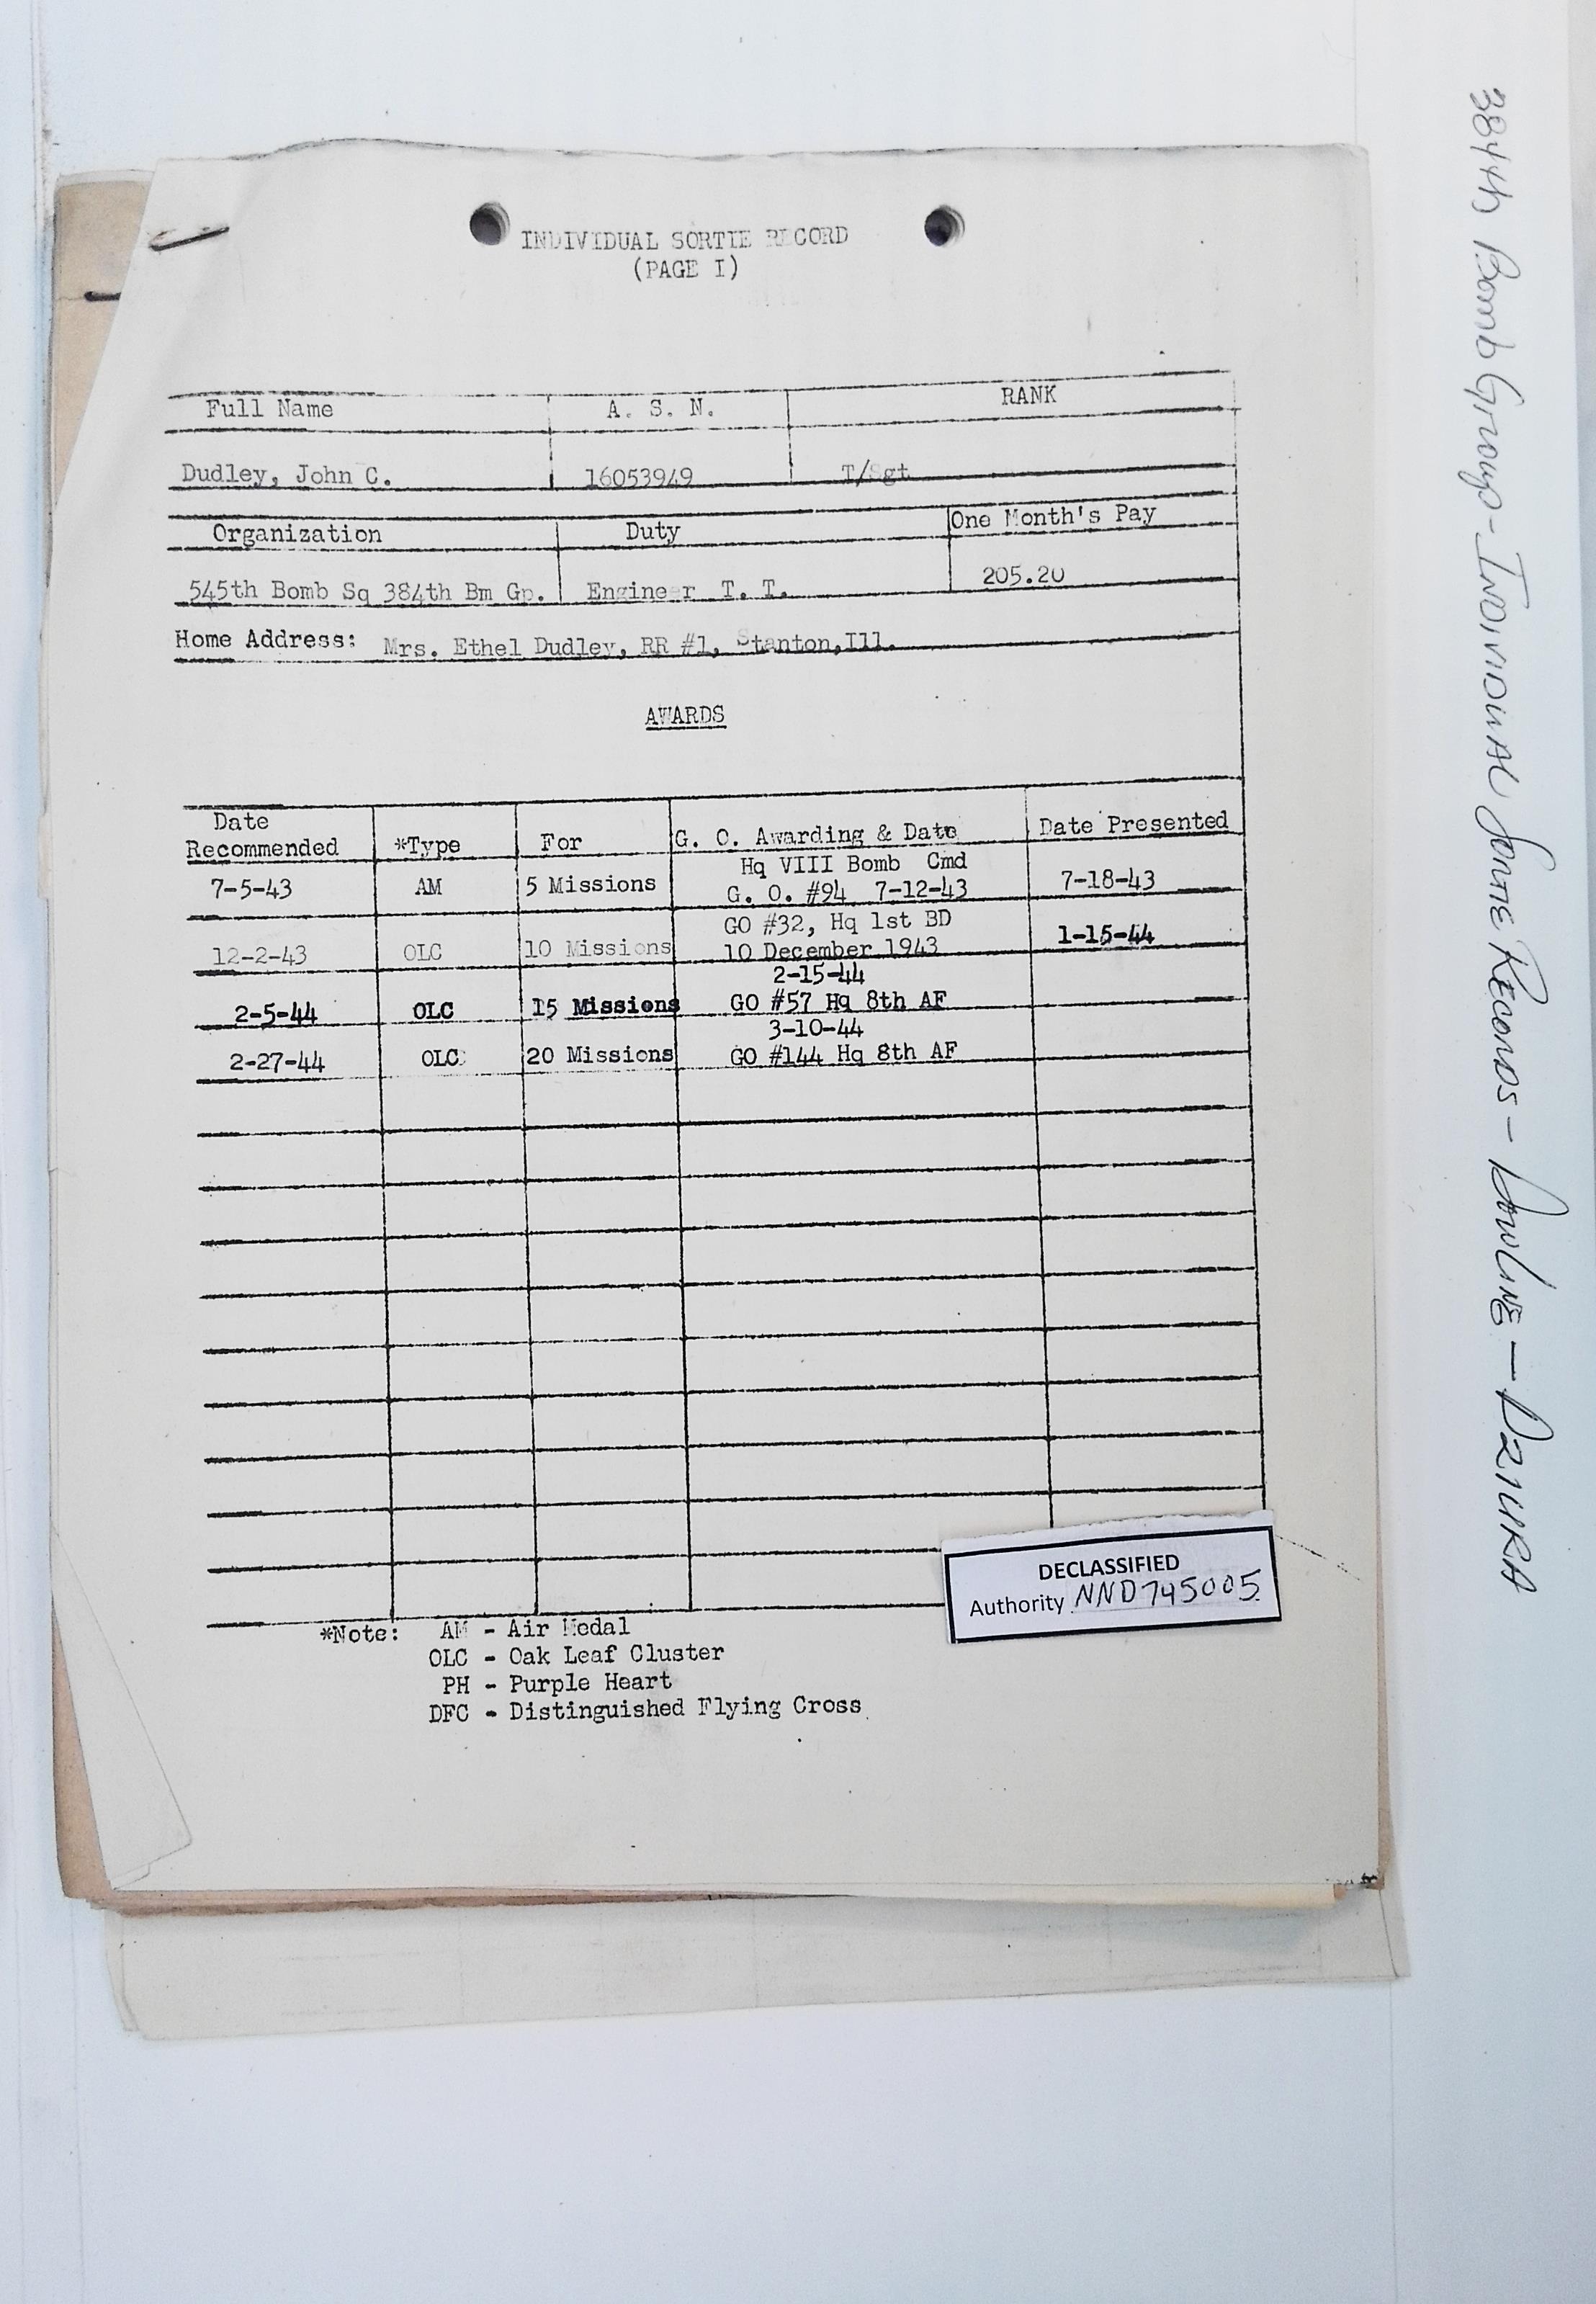 INDIVIDUAL SORTIE RECORD
(PAGE I)
Full Name A. S. N. RANK
Dudley, John C. 16053949 T/Sgt
Organization Duty One Month's Pay
545th Bomb Sq 384th Bm Gp. Engineer T. T. 205.20
Home Address: Mrs. Ethel Dudley, RR #1, Stanton,Ill.
AWARDS
Date
Recommended *Type For G. O. Awarding & Date Date Presented
Hq VIII Bomb Cmd
7-5-43 AM 5 Missions G. O. #94 7-12-43 7-18-43
GO #32, Hq 1st BD
12-2-43 OLC 10 Missions 10 December 1943 1-15-44
2-15-44
2-5-44 OLC 15 Missions GO #57 Hq 8th AF
3-10-44
2-27-44 OLC 20 Missions GO #144 Hq 8th AF
DECLASSIFIED
Authority NND 745005
*Note: AM - Air Medal
OLC - Oak Leaf Cluster
PH - Purple Heart
DFC - Distinguished Flying Cross
384th Bomb Group - INDIVIDUAL SORTIE RECORDS - DOWLING - DZIURA